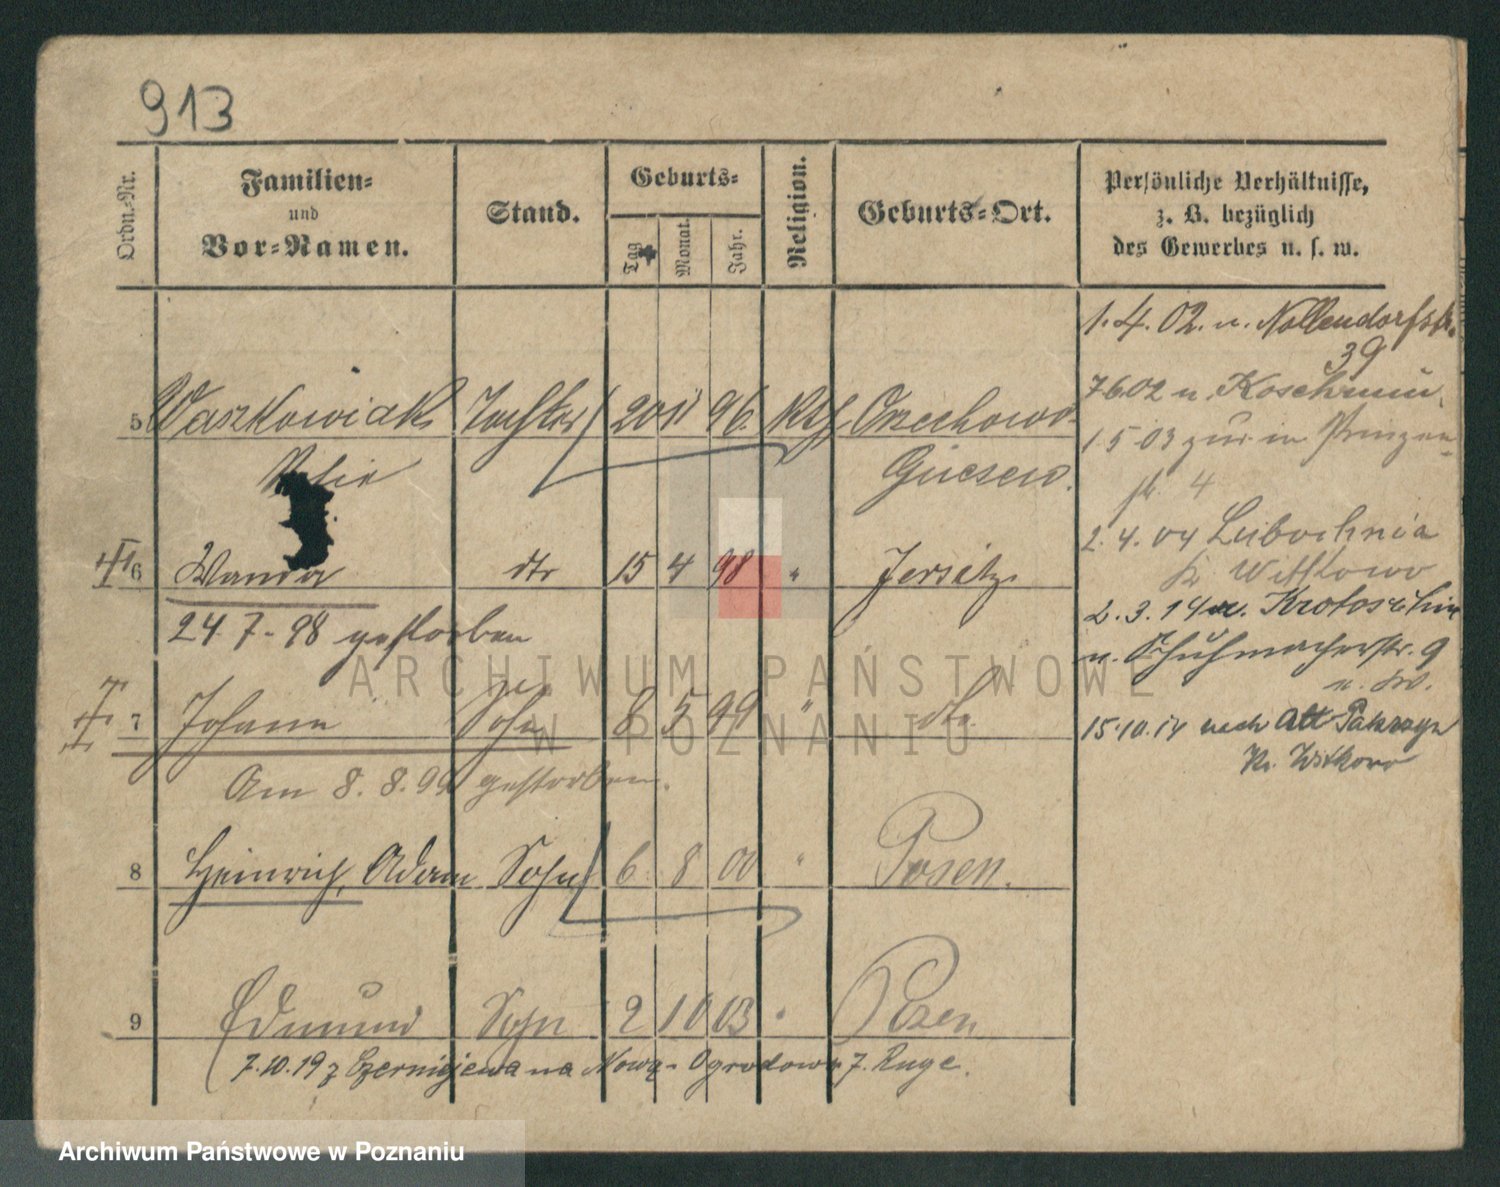 913
Ordn.-Nr.
Familien-
und
Vor-Namen.
Stand.
Geburts-
Tag
Monat.
Jahr.
Religion.
Geburts-Ort.
Persönliche Verhältnisse,
z. B. bezüglich
des Gewerbes u. s. w.
1. 4. 02. n. Nollendorfstr.
39
5 Waszkowiak Tochter 20 11 96. Kth Orzechowo
Gnesen.
7 6 02 n. Koschmin
1 5 03 zur. in Prinzen-
str 4
2. 4. 04 Lubochnia
Kr Wittkowo
6 Wanda dto 15 4 98 " Jersitz.
24. 7. 98 gestorben
2. 3. 14 n. Krotoschin
n. Schuhmacherstr. 9
7 Johann Sohn 8 5 99 " dto.
Am 8. 8. 99 gestorben.
15. 10. 14 nach Alt
Kr. Witkowo
8 Heinrich, Adam Sohn 6 8 00 " Posen.
9 Edmund Sohn 2 10 03 " Posen
7. 10. 19 z Czerniejewa na Nową-Ogrodową 7. Ruge.
ARCHIWUM PAŃSTWOWE
W POZNANIU
Archiwum Państwowe w Poznaniu